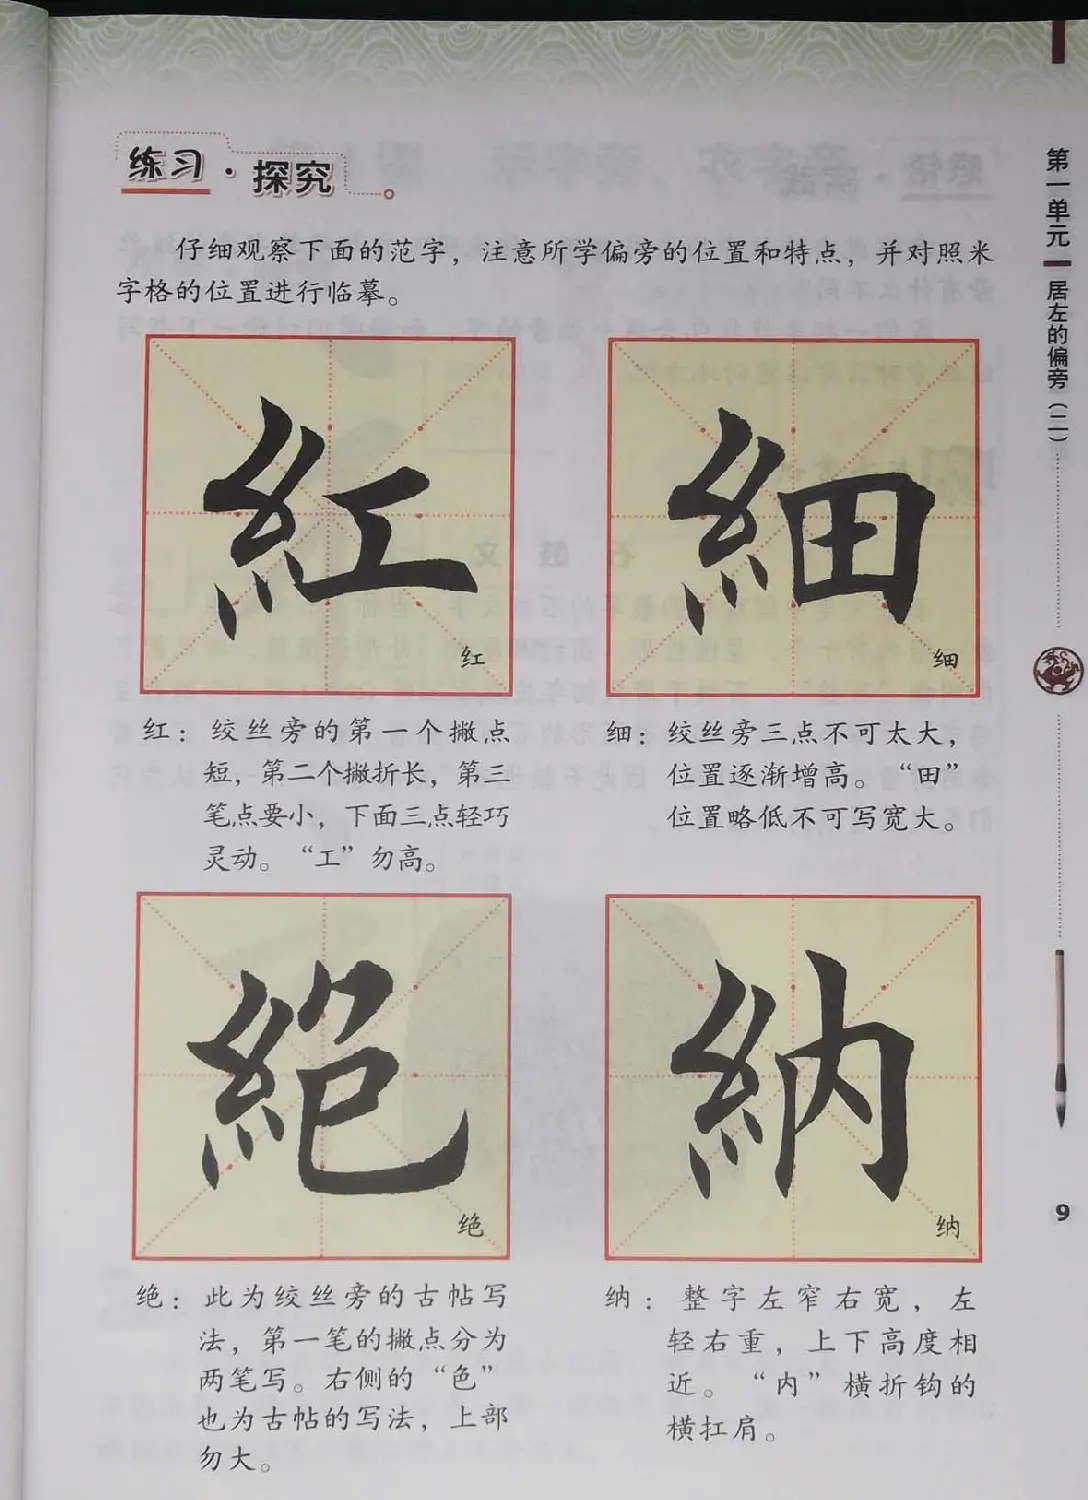 练习·探究
仔细观察下面的范字，注意所学偏旁的位置和特点，并对照米
字格的位置进行临摹。
紅
红
細
细
红：绞丝旁的第一个撇点
短，第二个撇折长，第三
笔点要小，下面三点轻巧
灵动。“工”勿高。
细：绞丝旁三点不可太大，
位置逐渐增高。“田”
位置略低不可写宽大。
絕
绝
納
纳
绝：此为绞丝旁的古帖写
法，第一笔的撇点分为
两笔写。右侧的“色”
也为古帖的写法，上部
勿大。
纳：整字左窄右宽，左
轻右重，上下高度相
近。“内”横折钩的
横扛肩。
第一单元
居左的偏旁（二）
9